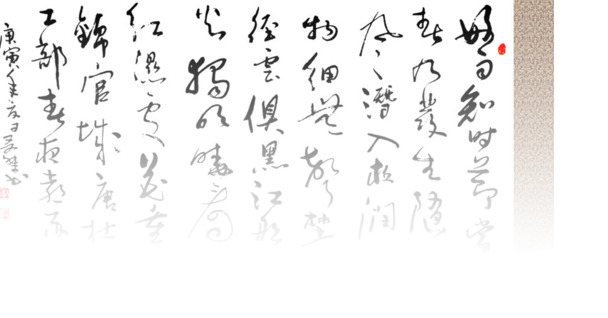 好雨知时節當
春乃發生隨
風潛入夜潤
物細無聲野
徑雲俱黑江船
火獨明曉看
紅濕處花重
錦官城唐杜
工部春夜喜雨
庚寅年